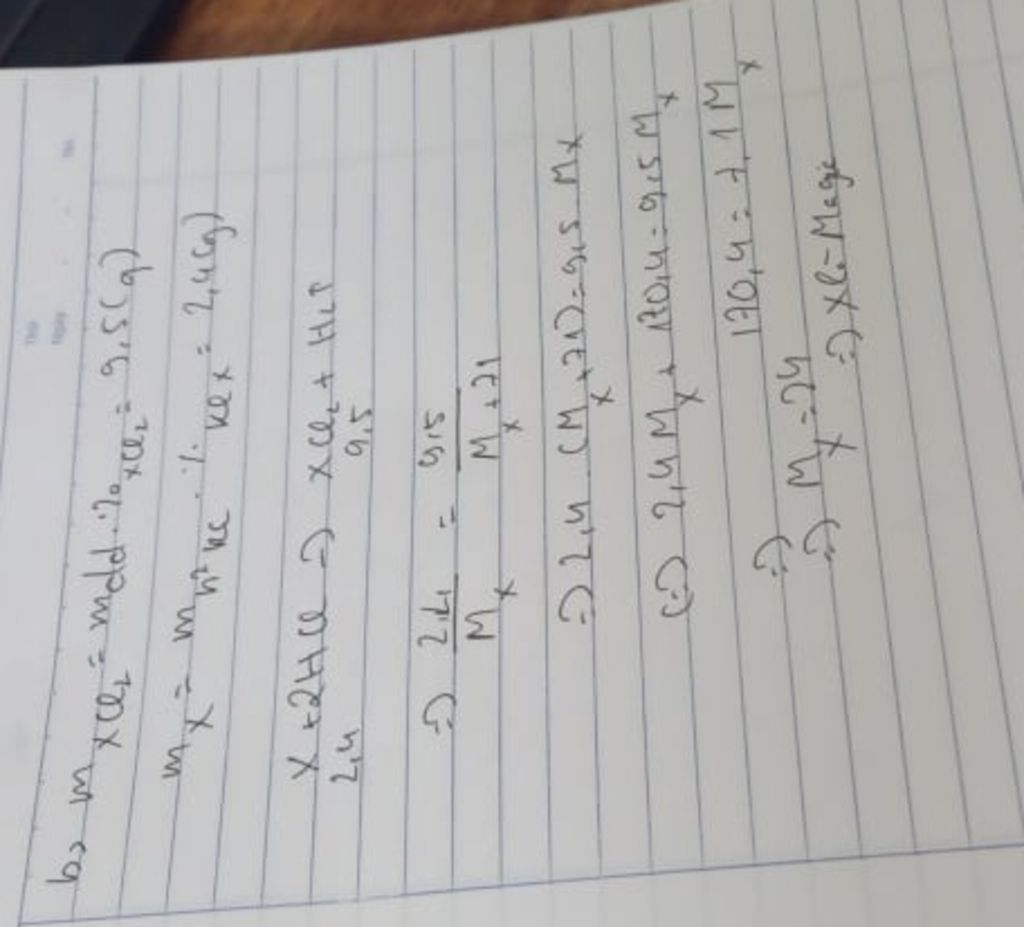 b, m_XCl₂ = mdd . % XCl₂ = 9,5 (g)
m_X = m . % = 2,4 (g)
X + 2HCl => XCl₂ + H₂↑
2,4 9,5
=> 2,4/M_X = 9,5/M_X+71
=> 2,4 (M_X+71) = 9,5 M_X
(=) 2,4 M_X + 170,4 = 9,5 M_X
=> 170,4 = 7,1 M_X
=> M_X = 24 => X là Magie